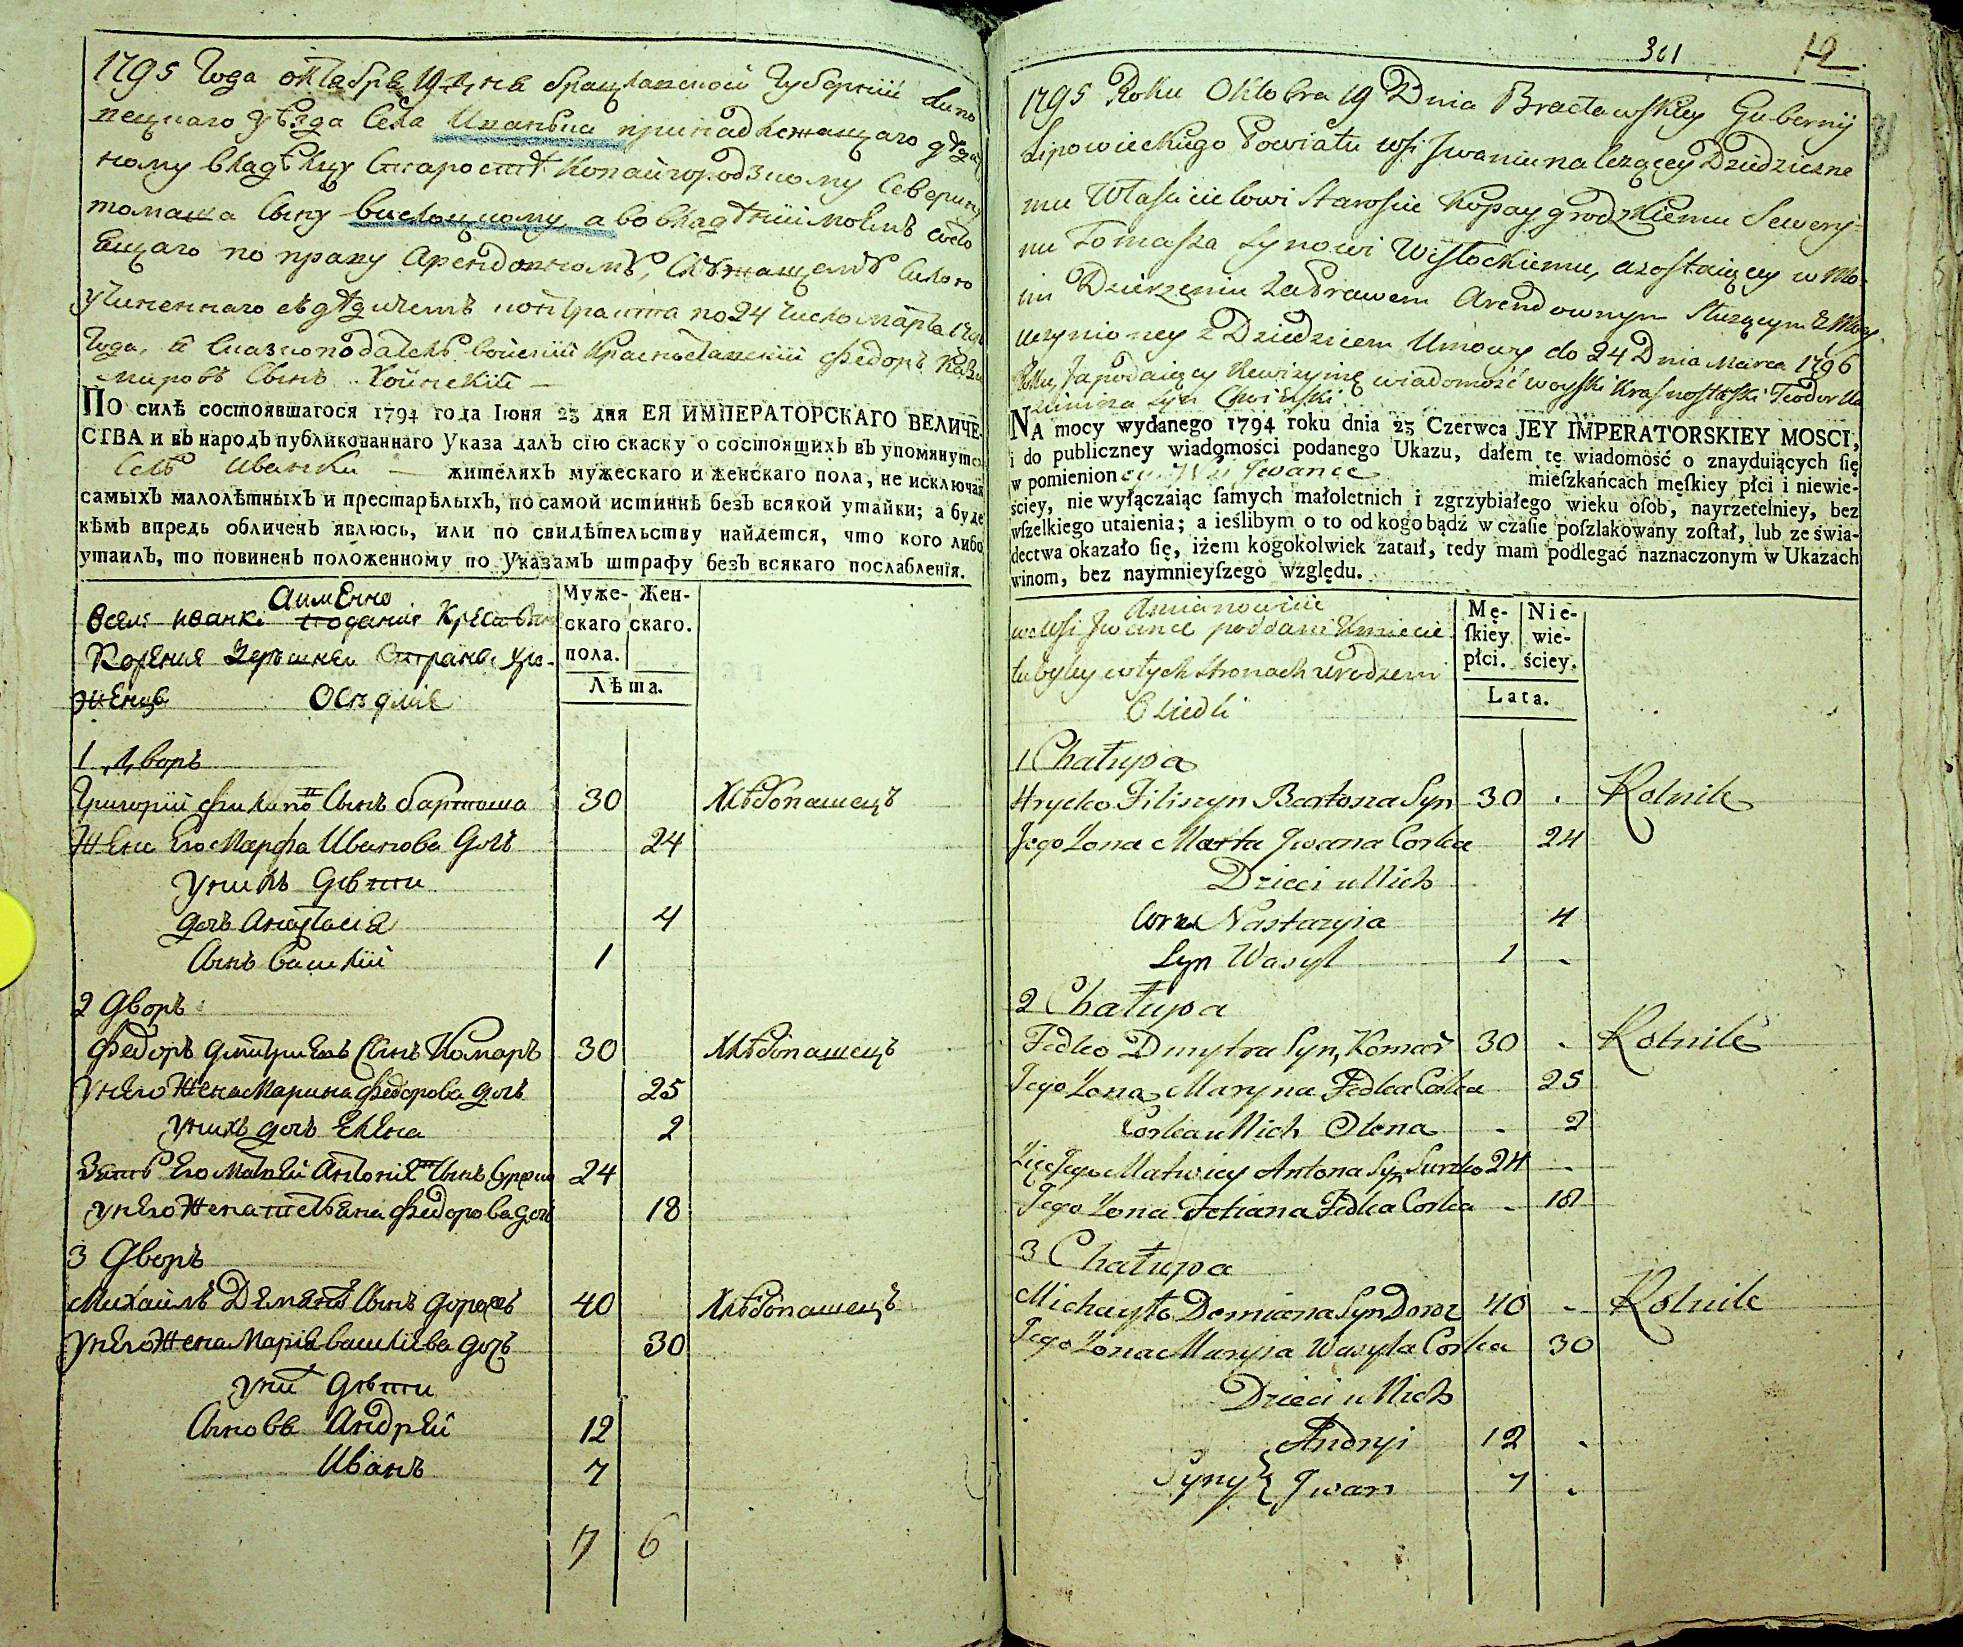 1795 Года октабра 19 дня брацлавской Губернии Липо
вецкаго уѣзда Села Иваньки принадлежащаго дѣди
ному владѣлцу Старостѣ Копайгородзкому Северину
томаша Сыну вислоцкому, а во владѣнии моемъ состо
ящаго по праву Арендовному, Служащему Силою
учиненнаго съ дѣдичемъ контракта по 24 число марта 1796
Года, Я Сказкоподатель войский Красноставский Федоръ Кази
мировъ Сынъ Хоинский
ПО силѣ состоявшагося 1794 года Іюня 23 дня ЕЯ ИМПЕРАТОРСКАГО ВЕЛИЧЕ-
СТВА и въ народъ публикованнаго Указа далъ сію скаску о состоящихъ въ упомянутомъ
Селѣ Иванки жителяхъ мужескаго и женскаго пола, не исключая
самыхъ малолѣтныхъ и престарѣлыхъ, по самой истиннѣ безъ всякой утайки; а буде
кѣмъ впредь обличенъ явлюсь, или по свидѣтельству найдется, что кого либо
утаилъ, то повиненъ положенному по Указамъ штрафу безъ всякаго послабленія.
Аименно
Вселѣ иванки подание Крестяне
Корения здешней Страны уро-
женцы Оседлие
Муже-скаго пола.
Жен-скаго.
Лѣта.
1 Дворъ
Григорий филипо Сынъ бартоша 30 Хлѣбопашецъ
Жена Его Марфа Иванова дочь 24
Уних дѣти
дочь Анастасия 4
Сынъ василий 1
2 Дворъ
Федоръ дмитриевъ Сынъ Комаръ 30 Хлѣбопашецъ
Унего Жена Марина Федорова дочь 25
Унихъ дочь Елена 2
Зять Его Матвей Антоние Сынъ 24
Унего Жена татьяна Федорова дочь 18
3 Дворъ
Михайлъ Демянъ Сынъ 40 Хлѣбопашецъ
Унего Жена Мария василиева дочь 30
Уних дѣти
Сыновя Андрей 12
Иванъ 7
7 6
301 12
1795 Roku Oktobra 19 Dnia Bracławskiey Gubernij
Lipowieckiego Powiatu wsi Jwaniu nalezącey Dziedziczne
mu Właścicielowi Staroscie Kopaygrodzkiemu Sewery=
nu Tomasza Synowi Wisłockiemu, a zostaiącey w Mo-
im Dzierzeniu za Prawem Arendownym Służącym z Mocy
uczynioney z Dziedzicem Umowy do 24 Dnia Marca 1796
Roku, Ja podaiący Rewizyinę wiadomość woyski Krasnostawski Teodor Ka
zimirza Syn Choiński
NA mocy wydanego 1794 roku dnia 23 Czerwca JEY IMPERATORSKIEY MOSCI,
i do publiczney wiadomości podanego Ukazu, dałem tę wiadomość o znayduiących się
w pomienioney Wsi Jwance mieſzkańcach męſkiey płci i niewie-
ściey, nie wyłączaiąc ſamych małoletnich i zgrzybiałego wieku osób, nayrzetelniey, bez
wſzelkiego utaienia; a ieślibym o to od kogo bądź w czaſie poſzlakowany zoſtał, lub ze świa-
dectwa okazało ſię, iżem kogokolwiek zataił, tedy mam podlegać naznaczonym w Ukazach
winom, bez naymnieyſzego względu.
Amianowicie
we Wsi Jwance poddani Kmiecie
tubylcy w tych stronach urodzeni
Osiedli
Mę-ſkiey płci.
Nie-wie-ściey.
Lata.
1 Chałupa
Hrycko Filiszyn Bartosza Syn 30 . Rolnik
Jego Zona Marta Jwana Corka 24
Dzieci u Nich
Corka Nastazyia 4
Syn Wasyl 1 -
2 Chałupa
Fedko Dmytra Syn Komar 30 . Rolnik
Jego Zona Maryna Fedka Corka 25
Corka u Nich Olena - 2
Zięć Jego Matwiey Antona Syn 24 -
Jego Zona Tetiana Fedka Corka - 18
3 Chałupa
Michayło Demiana Syn Doroz 40 - Rolnik
Jego Zona Maryia Wasyla Corka 30
Dzieci u Nich
Andryi 12 .
Syny { Jwan 7 .